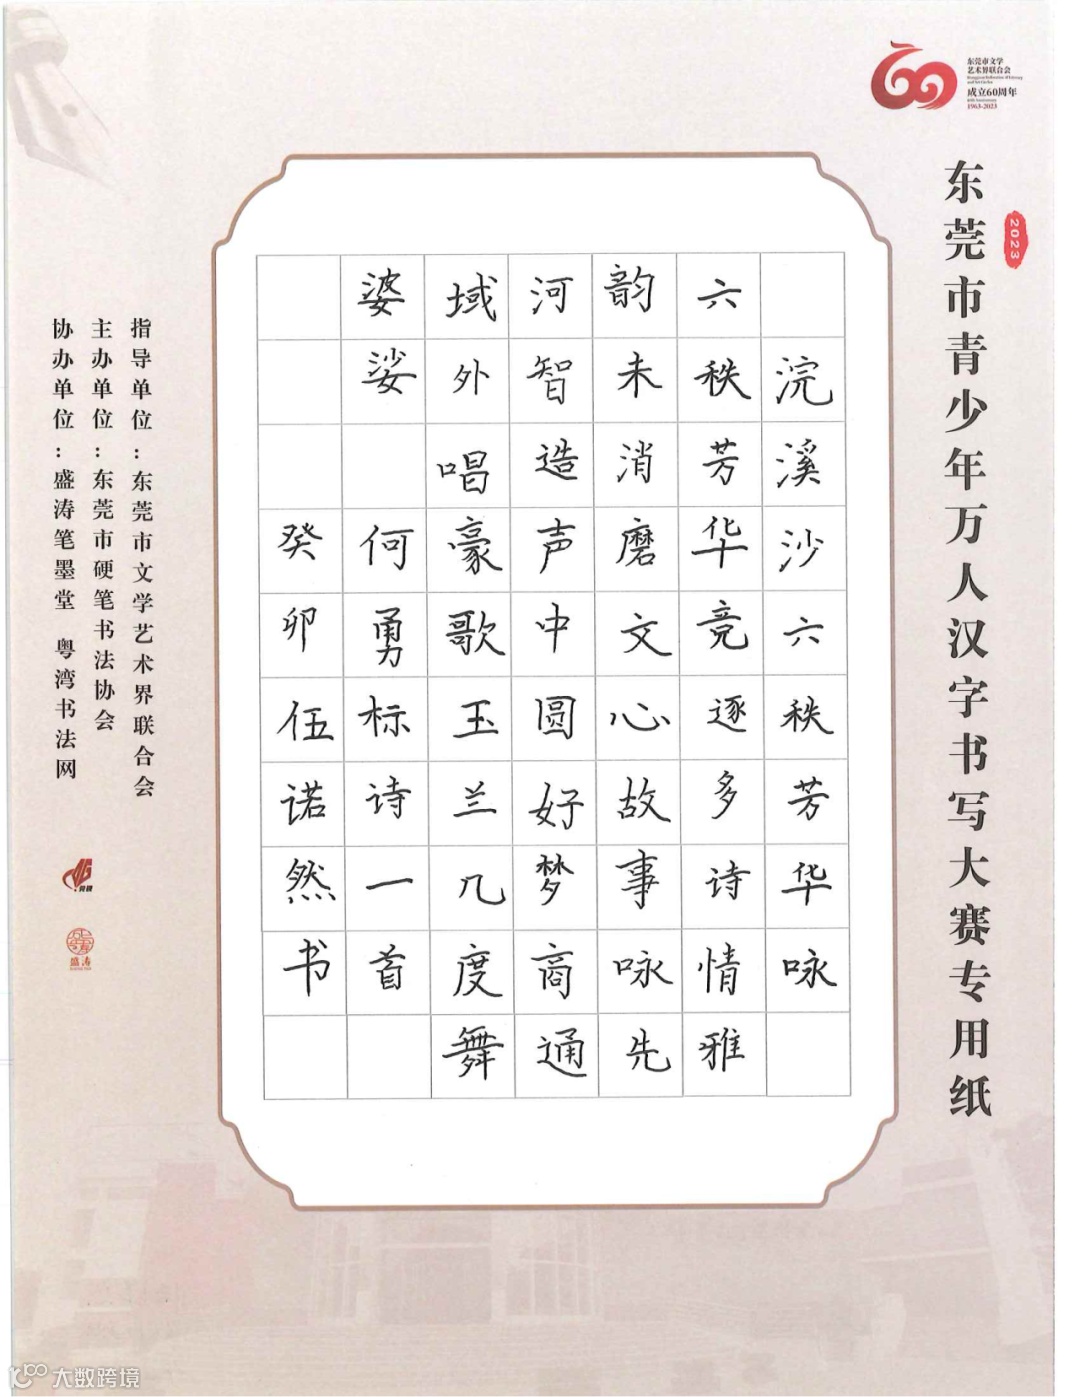 东莞市文学
艺术界联合会
成立60周年
1963-2023
2023
东莞市青少年万人汉字书写大赛专用纸
浣溪沙六秩芳华咏
六秩芳华竞逐多诗情雅
韵未消磨文心故事咏先
河智造声中圆好梦商通
域外唱豪歌玉兰几度舞
婆娑何勇标诗一首
癸卯伍诺然书
指导单位：东莞市文学艺术界联合会
主办单位：东莞市硬笔书法协会
协办单位：盛涛笔墨堂 粤湾书法网
盛涛
大数跨境